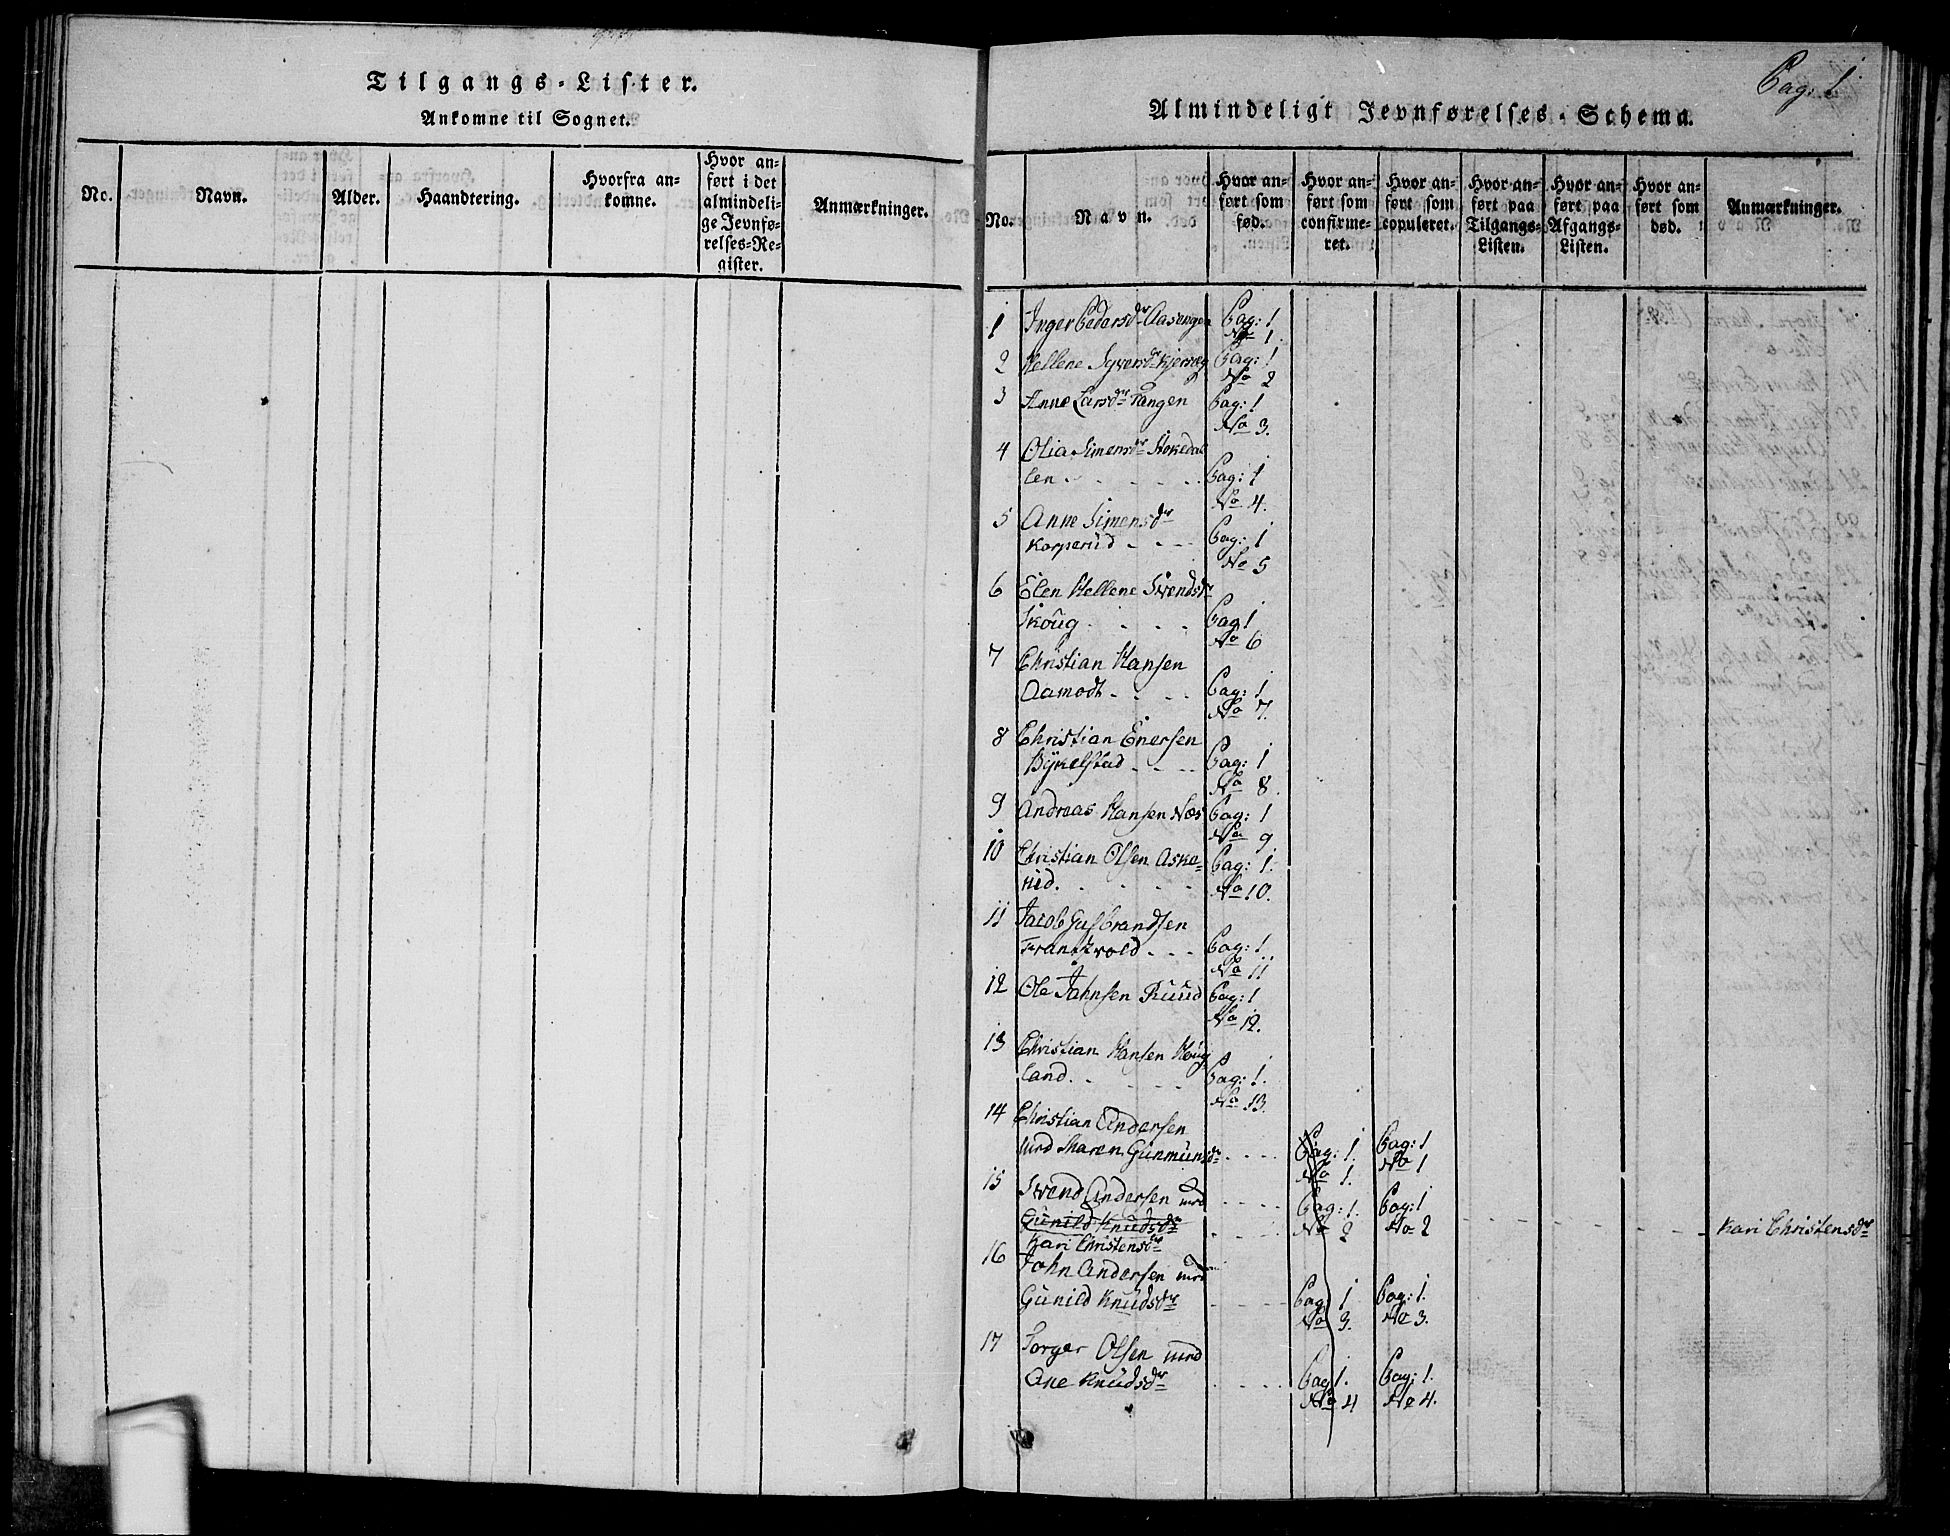 Tilgangs-Lister.
Ankomne til Sognet.
No.
Navn.
Alder.
Haandtering.
Hvorfra an-
komne.
Hvor an-
ført i det
almindeli-
ge Jevnfø-
relses-Re-
gister.
Anmærkninger.
Pag: 1
Almindeligt Jevnførelses-Schema.
No.
Navn.
Hvor an-
ført som
fød.
Hvor an-
ført som
confirme-
ret.
Hvor an-
ført som
copuleret.
Hvor an-
ført paa
Tilgangs-
Listen.
Hvor an-
ført paa
Afgangs-
Listen.
Hvor an-
ført som
død.
Anmærkninger.
1 Inger Pedersdr Aasengen Pag: 1
No 1
2 Hellene Syversdr Pag: 1
No 2
3 Anne Larsdr Tangen Pag: 1
No 3.
4 Olia Simensdr Stokedal
len Pag: 1
No 4.
5 Anne Simensdr
Korperud Pag: 1
No 5
6 Elen Hellene Svendsdr
Skoug Pag 1
No 6
7 Christian Hansen
Aamodt Pag: 1
No 7.
8 Christian Enersen
Bykelstad Pag: 1
No 8.
9 Andreas Hansen Næs Pag: 1
No 9
10 Christian Olsen Aske=
rud. Pag: 1.
No 10.
11 Jacob Gulbrandsen
Frantzvold Pag: 1.
No 11
12 Ole Jahnsen Ruud Pag: 1
No 12.
13 Christian Hansen Houg
land. Pag: 1.
No 13.
14 Christian Andersen
med Maren Gunmunsdr Pag: 1. Pag: 1
No 1. No 1
15 Svend Andersen med Pag: 1. Pag: 1
Gunild Knudsdr No 2 No 2 Kari Christensdr
Kari Christensdr
16 John Andersen med
Gunild Knudsdr Pag 1 Pag: 1.
No 3. No 3.
17 Torger Olsen med
Ane Knudsdr Pag 1. Pag: 1.
No 4 No 4.